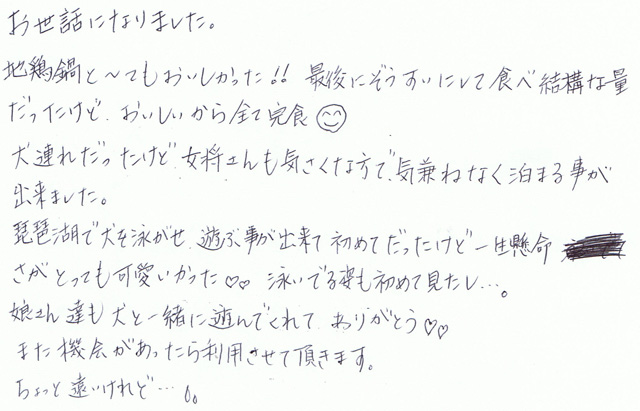 お世話になりました。
地鶏鍋と〜てもおいしかった!! 最後にぞうすいにして食べ結構な量
だったけど、おいしいから全て完食☺
犬連れだったけど女将さんも気さくな方で、気兼ねなく泊まる事が
出来ました。
琵琶湖で犬を泳がせ、遊ぶ事が出来て初めてだったけど一生懸命
さがとっても可愛いかった♡♡ 泳いでる姿も初めて見たし…。
娘さん達も犬と一緒に遊んでくれて、ありがとう♡♡
また機会があったら利用させて頂きます。
ちょっと遠いけれど…。